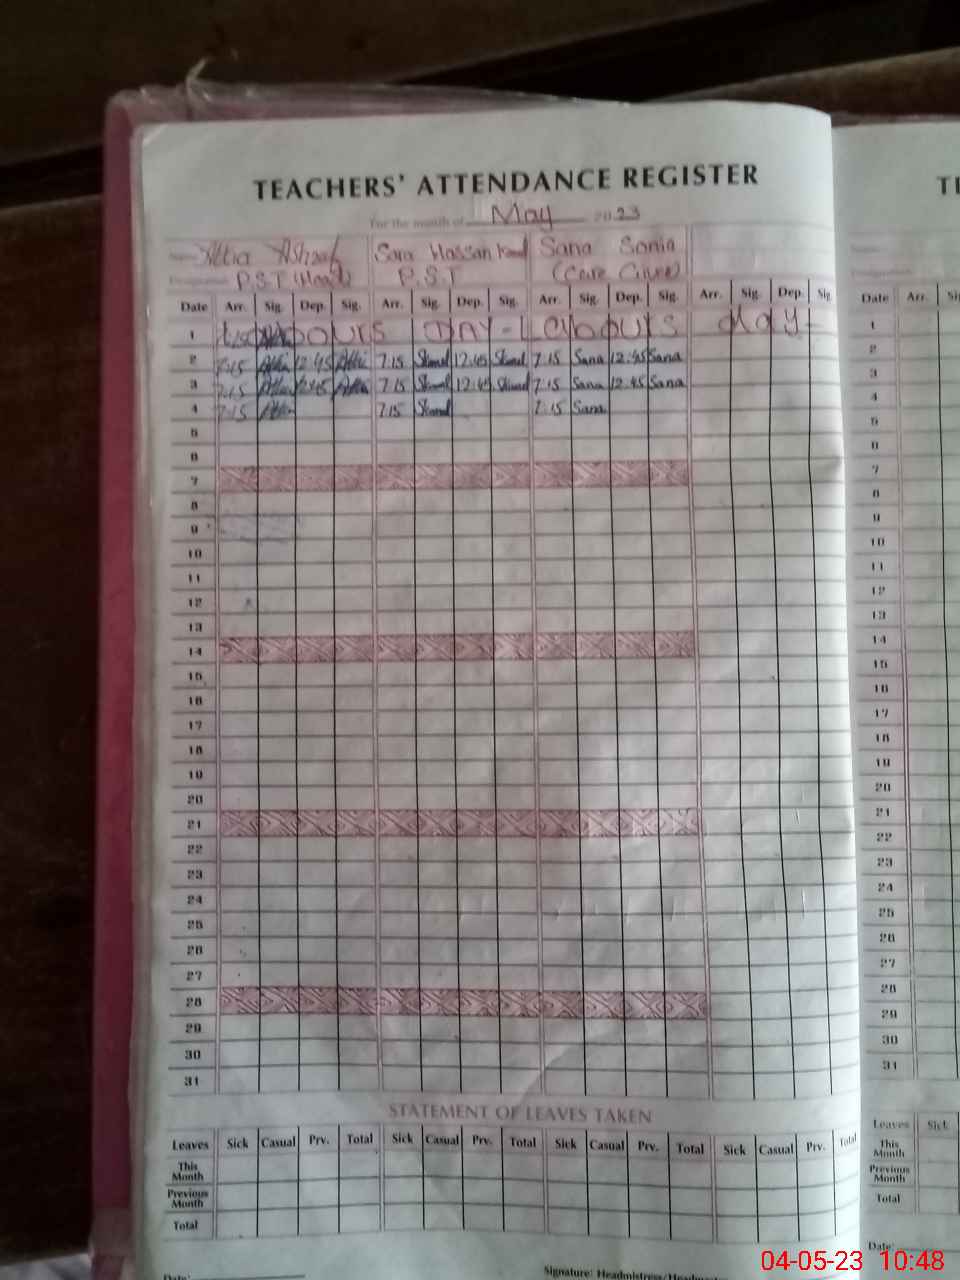 TEACHERS' ATTENDANCE REGISTER
For the month of May 2023
Name Attia Ashraf Sara Hassan Sana Sonia
Designation P.S.T (Head) P.S.T (Care Giver)
Date Arr. Sig. Dep. Sig. Arr. Sig. Dep. Sig. Arr. Sig. Dep. Sig. Arr. Sig. Dep. Sig.
1 Labours DAY - Labours day -
2 7:15 Attia 12:45 Attia 7.15 12:45 7:15 Sana 12:45 Sana
3 7:15 Attia 12:45 Attia 7.15 12:45 7:15 Sana 12:45 Sana
4 7:15 Attia 7.15 7:15 Sana
5
6
7
8
9
10
11
12
13
14
15
16
17
18
19
20
21
22
23
24
25
26
27
28
29
30
31
STATEMENT OF LEAVES TAKEN
Leaves Sick Casual Prv. Total Sick Casual Prv. Total Sick Casual Prv. Total Sick Casual Prv. Total
This Month
Previous Month
Total
Date:
Signature: Headmistress/Headmaster
T
Date Arr.
1
2
3
4
5
6
7
8
9
10
11
12
13
14
15
16
17
18
19
20
21
22
23
24
25
26
27
28
29
30
31
Leaves Sick
This Month
Previous Month
Total
Date:
04-05-23 10:48